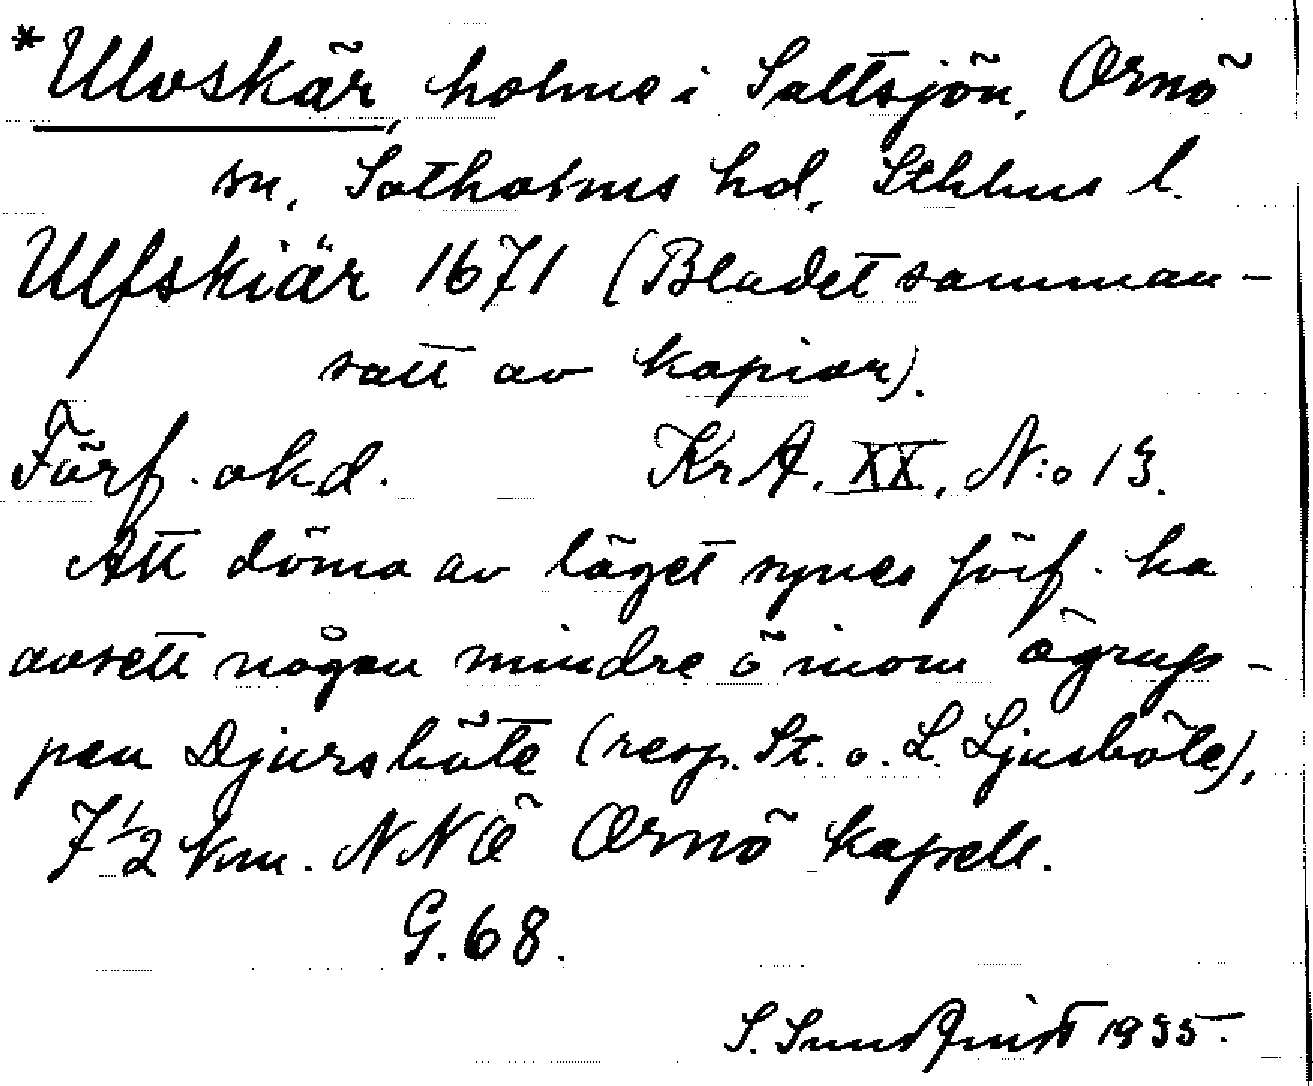 *Ulvskär, holme i Saltsjön, Ornö
sn, Sotholms hd, Sthlms l.
Ulfskiär 1671 (Bladet samman-
satt av kopior).
Förf. okd. KrA. XX, N:o 13.
Att döma av läget synes förf. ha
avsett någon mindre ö inom ögrup-
pen Djursböte (resp. St. o. L. Ljusböte),
7 1/2 km. NNÖ Ornö kapell.
G. 68.
S. Sundqvist 1935.